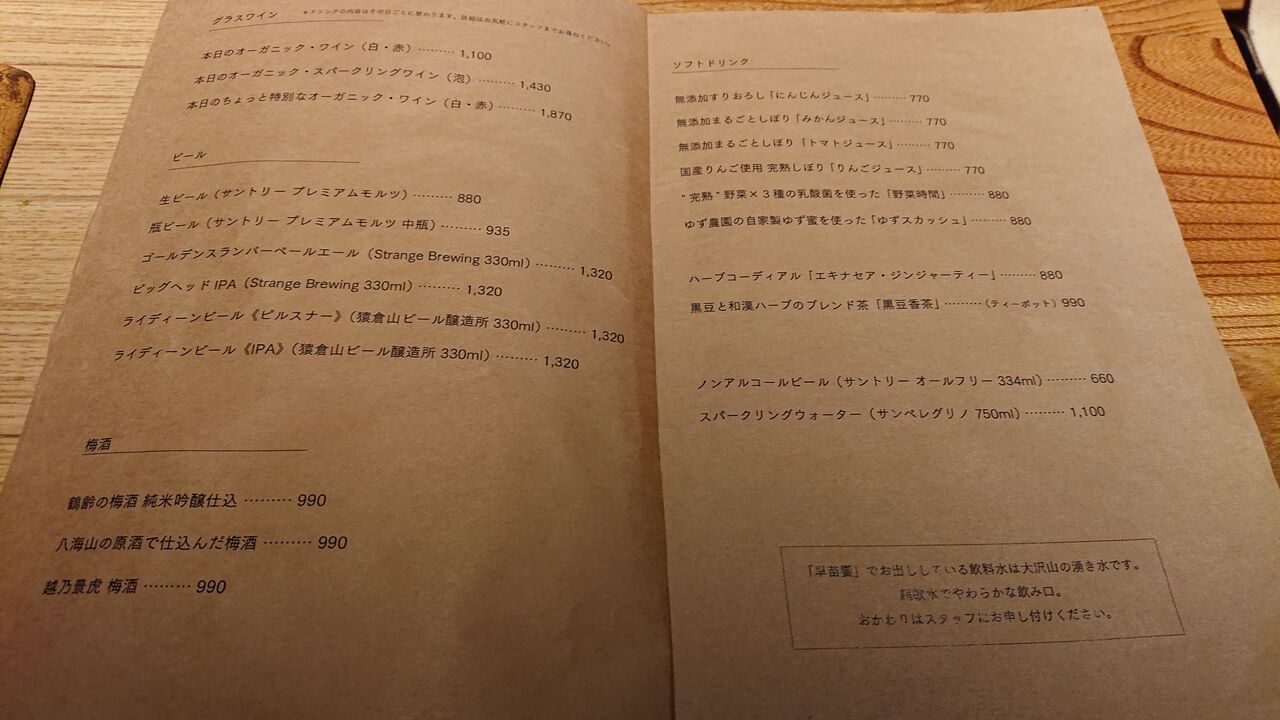 グラスワイン
＊ドリンクの内容はその日ごとに替わります。詳細はお気軽にスタッフまでお尋ねください。
本日のオーガニック・ワイン（白・赤）……… 1,100
本日のオーガニック・スパークリングワイン（泡）……… 1,430
本日のちょっと特別なオーガニック・ワイン（白・赤）……… 1,870
ビール
生ビール（サントリー プレミアムモルツ）……… 880
瓶ビール（サントリー プレミアムモルツ 中瓶）……… 935
ゴールデンスランバーペールエール（Strange Brewing 330ml）……… 1,320
ビッグヘッド IPA（Strange Brewing 330ml）……… 1,320
ライディーンビール《ピルスナー》（猿倉山ビール醸造所 330ml）……… 1,320
ライディーンビール《IPA》（猿倉山ビール醸造所 330ml）……… 1,320
梅酒
鶴齢の梅酒 純米吟醸仕込 ……… 990
八海山の原酒で仕込んだ梅酒 ……… 990
越乃景虎 梅酒 ……… 990
ソフトドリンク
無添加すりおろし「にんじんジュース」……… 770
無添加まるごとしぼり「みかんジュース」……… 770
無添加まるごとしぼり「トマトジュース」……… 770
国産りんご使用 完熟しぼり「りんごジュース」……… 770
"完熟"野菜×３種の乳酸菌を使った「野菜時間」……… 880
ゆず農園の自家製ゆず蜜を使った「ゆずスカッシュ」……… 880
ハーブコーディアル「エキナセア・ジンジャーティー」……… 880
黒豆と和漢ハーブのブレンド茶「黒豆香茶」………（ティーポット）990
ノンアルコールビール（サントリー オールフリー 334ml）……… 660
スパークリングウォーター（サンペレグリノ 750ml）……… 1,100
「早苗饗」でお出ししている飲料水は大沢山の湧き水です。
超軟水でやわらかな飲み口。
おかわりはスタッフにお申し付けください。